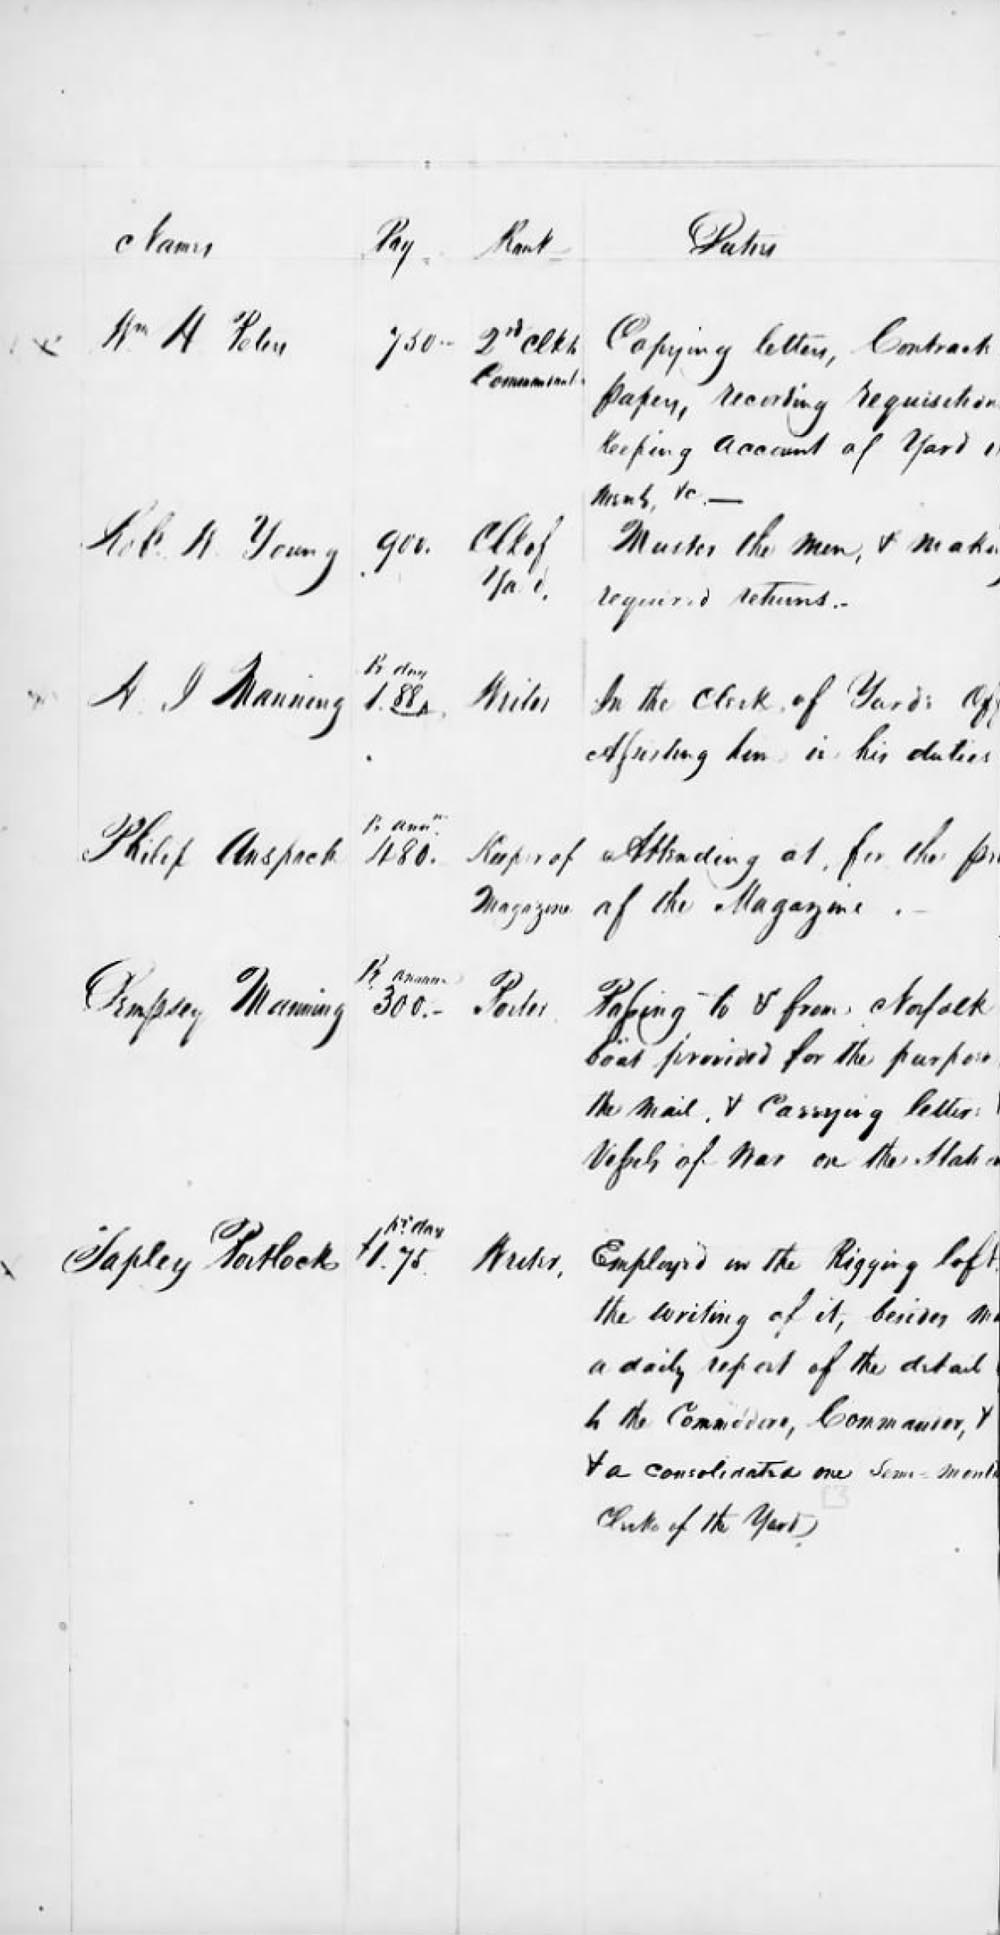 Names Pay Rank Duties
Wm H Peters 750 2nd Clk to Copying letters, Contract
Commandant papers, recording requisition
Keeping account of Yard
ments, &c. —
Robt. W. Young 900. Clk of Muster the men, & make
Yard. required returns.-
Pr day
A. J Manning 1.88 Writer In the Clerk of Yards Off
Assisting him in his duties
Pr annm
Philip Anspach 480. Keeper of Attending at, for the pre
Magazine of the Magazine . -
Pr annum
Dempsey Manning 300.- Porter Passing to & from Norfolk
boat provided for the purpose
the mail, & Carrying letters
Vessels of War on the Station
pr day
Tapley Portlock $1.75 Writer, Employed in the Rigging loft.
the writing of it, besides ma
a daily report of the detail
to the Commodore, Commander, &
& a consolidated one Semi-month
Clerk of the Yard